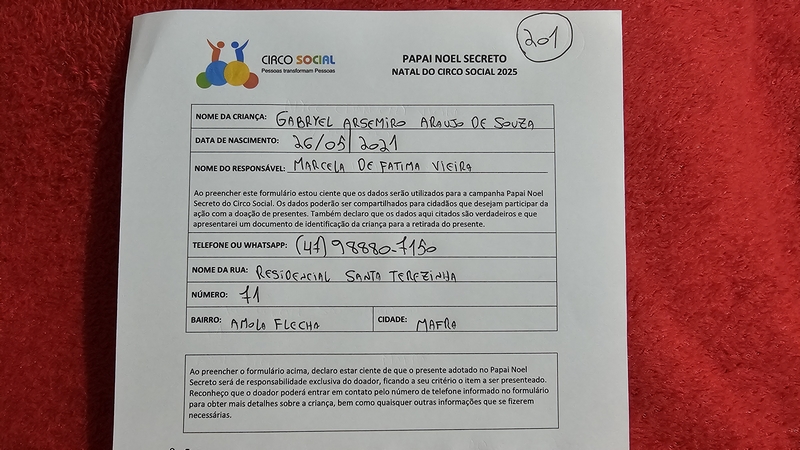 201
CIRCO SOCIAL
Pessoas transformam Pessoas
PAPAI NOEL SECRETO
NATAL DO CIRCO SOCIAL 2025
NOME DA CRIANÇA: GABRYEL ARSEMIRO ARAUJO DE SOUZA
DATA DE NASCIMENTO: 26/05/2021
NOME DO RESPONSÁVEL: MARCELA DE FATIMA VIEIRA
Ao preencher este formulário estou ciente que os dados serão utilizados para a campanha Papai Noel
Secreto do Circo Social. Os dados poderão ser compartilhados para cidadãos que desejam participar da
ação com a doação de presentes. Também declaro que os dados aqui citados são verdadeiros e que
apresentarei um documento de identificação da criança para a retirada do presente.
TELEFONE OU WHATSAPP: (47) 98880-7150
NOME DA RUA: RESIDENCIAL SANTA TEREZINHA
NÚMERO: 71
BAIRRO: AMOLA FLECHA CIDADE: MAFRA
Ao preencher o formulário acima, declaro estar ciente de que o presente adotado no Papai Noel
Secreto será de responsabilidade exclusiva do doador, ficando a seu critério o item a ser presenteado.
Reconheço que o doador poderá entrar em contato pelo número de telefone informado no formulário
para obter mais detalhes sobre a criança, bem como quaisquer outras informações que se fizerem
necessárias.